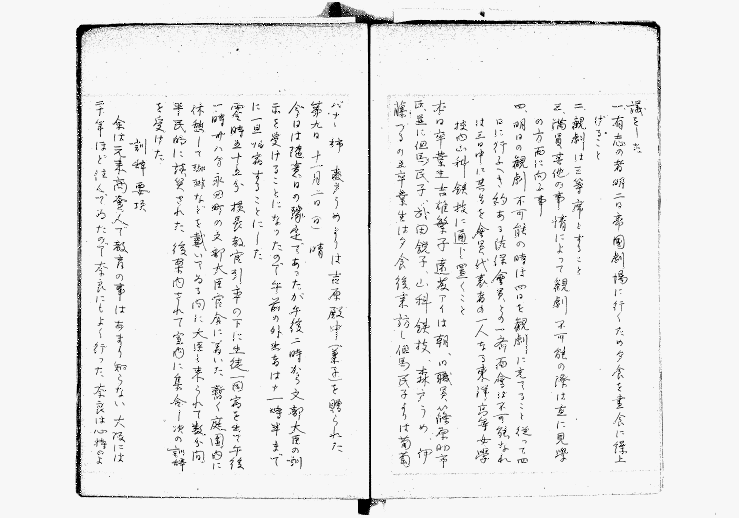 議をした
一、有志の者明二日帝国劇場に行くため夕食を昼食に繰上
げること
二、観劇は三等席とすること
三、満員其他の事情によって観劇不可能の際は直に見学
の方面に向ふ事
四、明日の観劇不可能の時は四日を観劇に充てること従って四
日に行ふべき約ある佐保會員との面會は不可能なれ
は三日中に其旨を會員代表者の一人なる東洋高等女學
校内山科鉄枝に通じ置くこと
本日卒業生古雄繁子 遠友アイは朝、旧職員篠原助市
氏並に但馬民子、武田鋭子、山科鉄枝、森アウめ、伊
藤つるの五卒業生は夕食後来訪し但馬民子よりは葡萄
バナヽ柿 森アうめよりは吉原殿中(菓子)を贈られた
第九日 十一月二日(日) 晴
今日は随意日の豫定であったが午後二時から文部大臣の訓
示を受けることになったので午前の外出者は十一時半まで
に一旦帰宿することにした
零時五十五分校長教官引率の下に生徒一同宿を出て午後
一時廿八分永田町の文部大臣官舎に着いた 暫く庭園内に
休憩して珈琲などを戴いてゐる内に大臣も来られて数分間
平民的に談笑された 後案内されて室内に集合し次の訓辞
を受けた
訓辞要項
余は元来商賣人で教育の事はあまり知らない 大阪には
二十年ほど住んでゐたので奈良にもよく行った、奈良は心持のよ